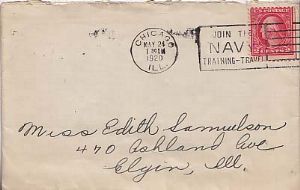 CHICAGO
MAY 24
1920
ILL.
JOIN THE
NAVY
TRAINING-TRAVEL
Miss Edith Samuelson
470 Ashland Ave
Elgin, Ill.